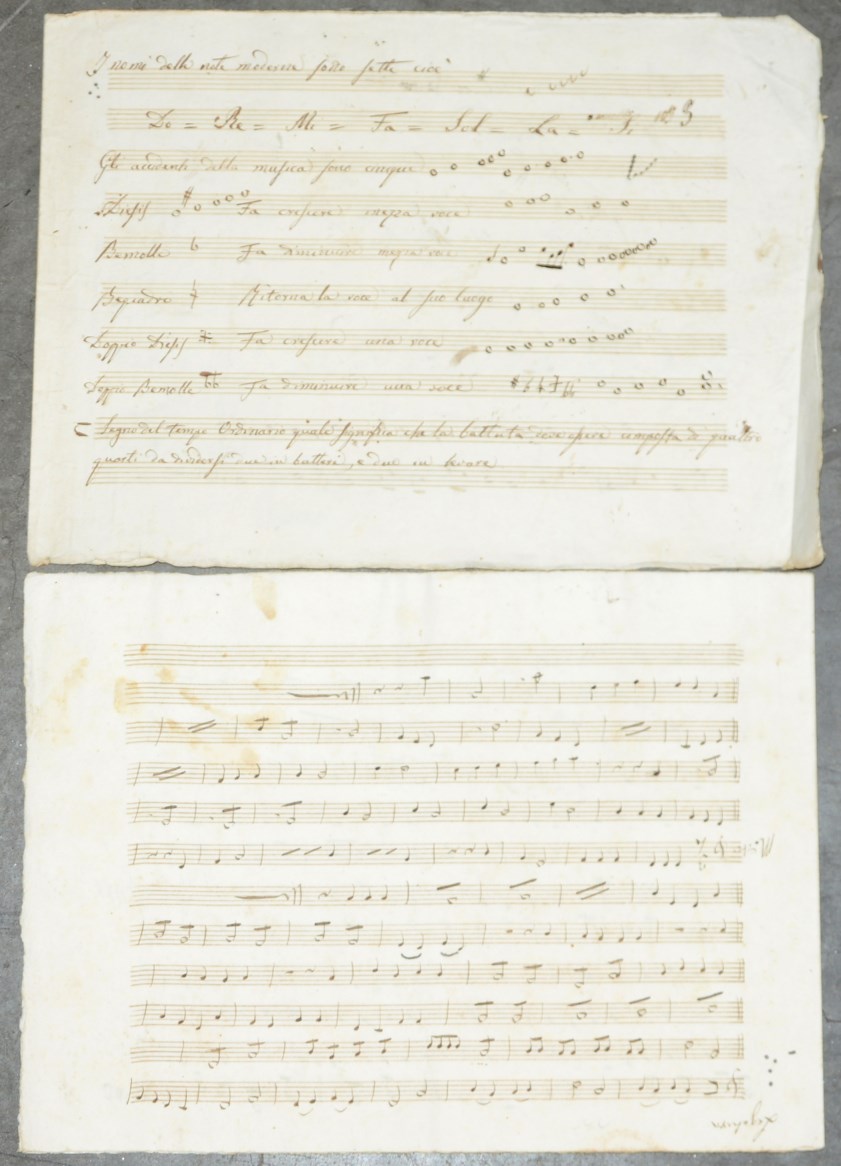 I nomi delle note moderne sono sette cioè
Do = Re = Mi = Fa = Sol = La = Si
Gli accidenti della musica sono cinque
Diesis # Fa crescere mezza voce
Bemolle b Fa diminuire mezza voce
Bequadro ♮ Ritorna la voce al suo luogo
Doppio Diesis Fa crescere una voce
Doppio Bemolle bb Fa diminuire una voce
C Segno del tempo Ordinario quale significa che la battuta deve essere composta di quattro
quarti da dividersi due in battere, e due in levare